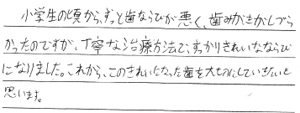 小学生の頃から、ずっと歯ならびが悪く、歯みがきがしづら
かったのですが、丁寧な治療方法で、すっかりきれいなならび
になりました。これから、このきれいになった歯を大切にしていきたいと
思います。